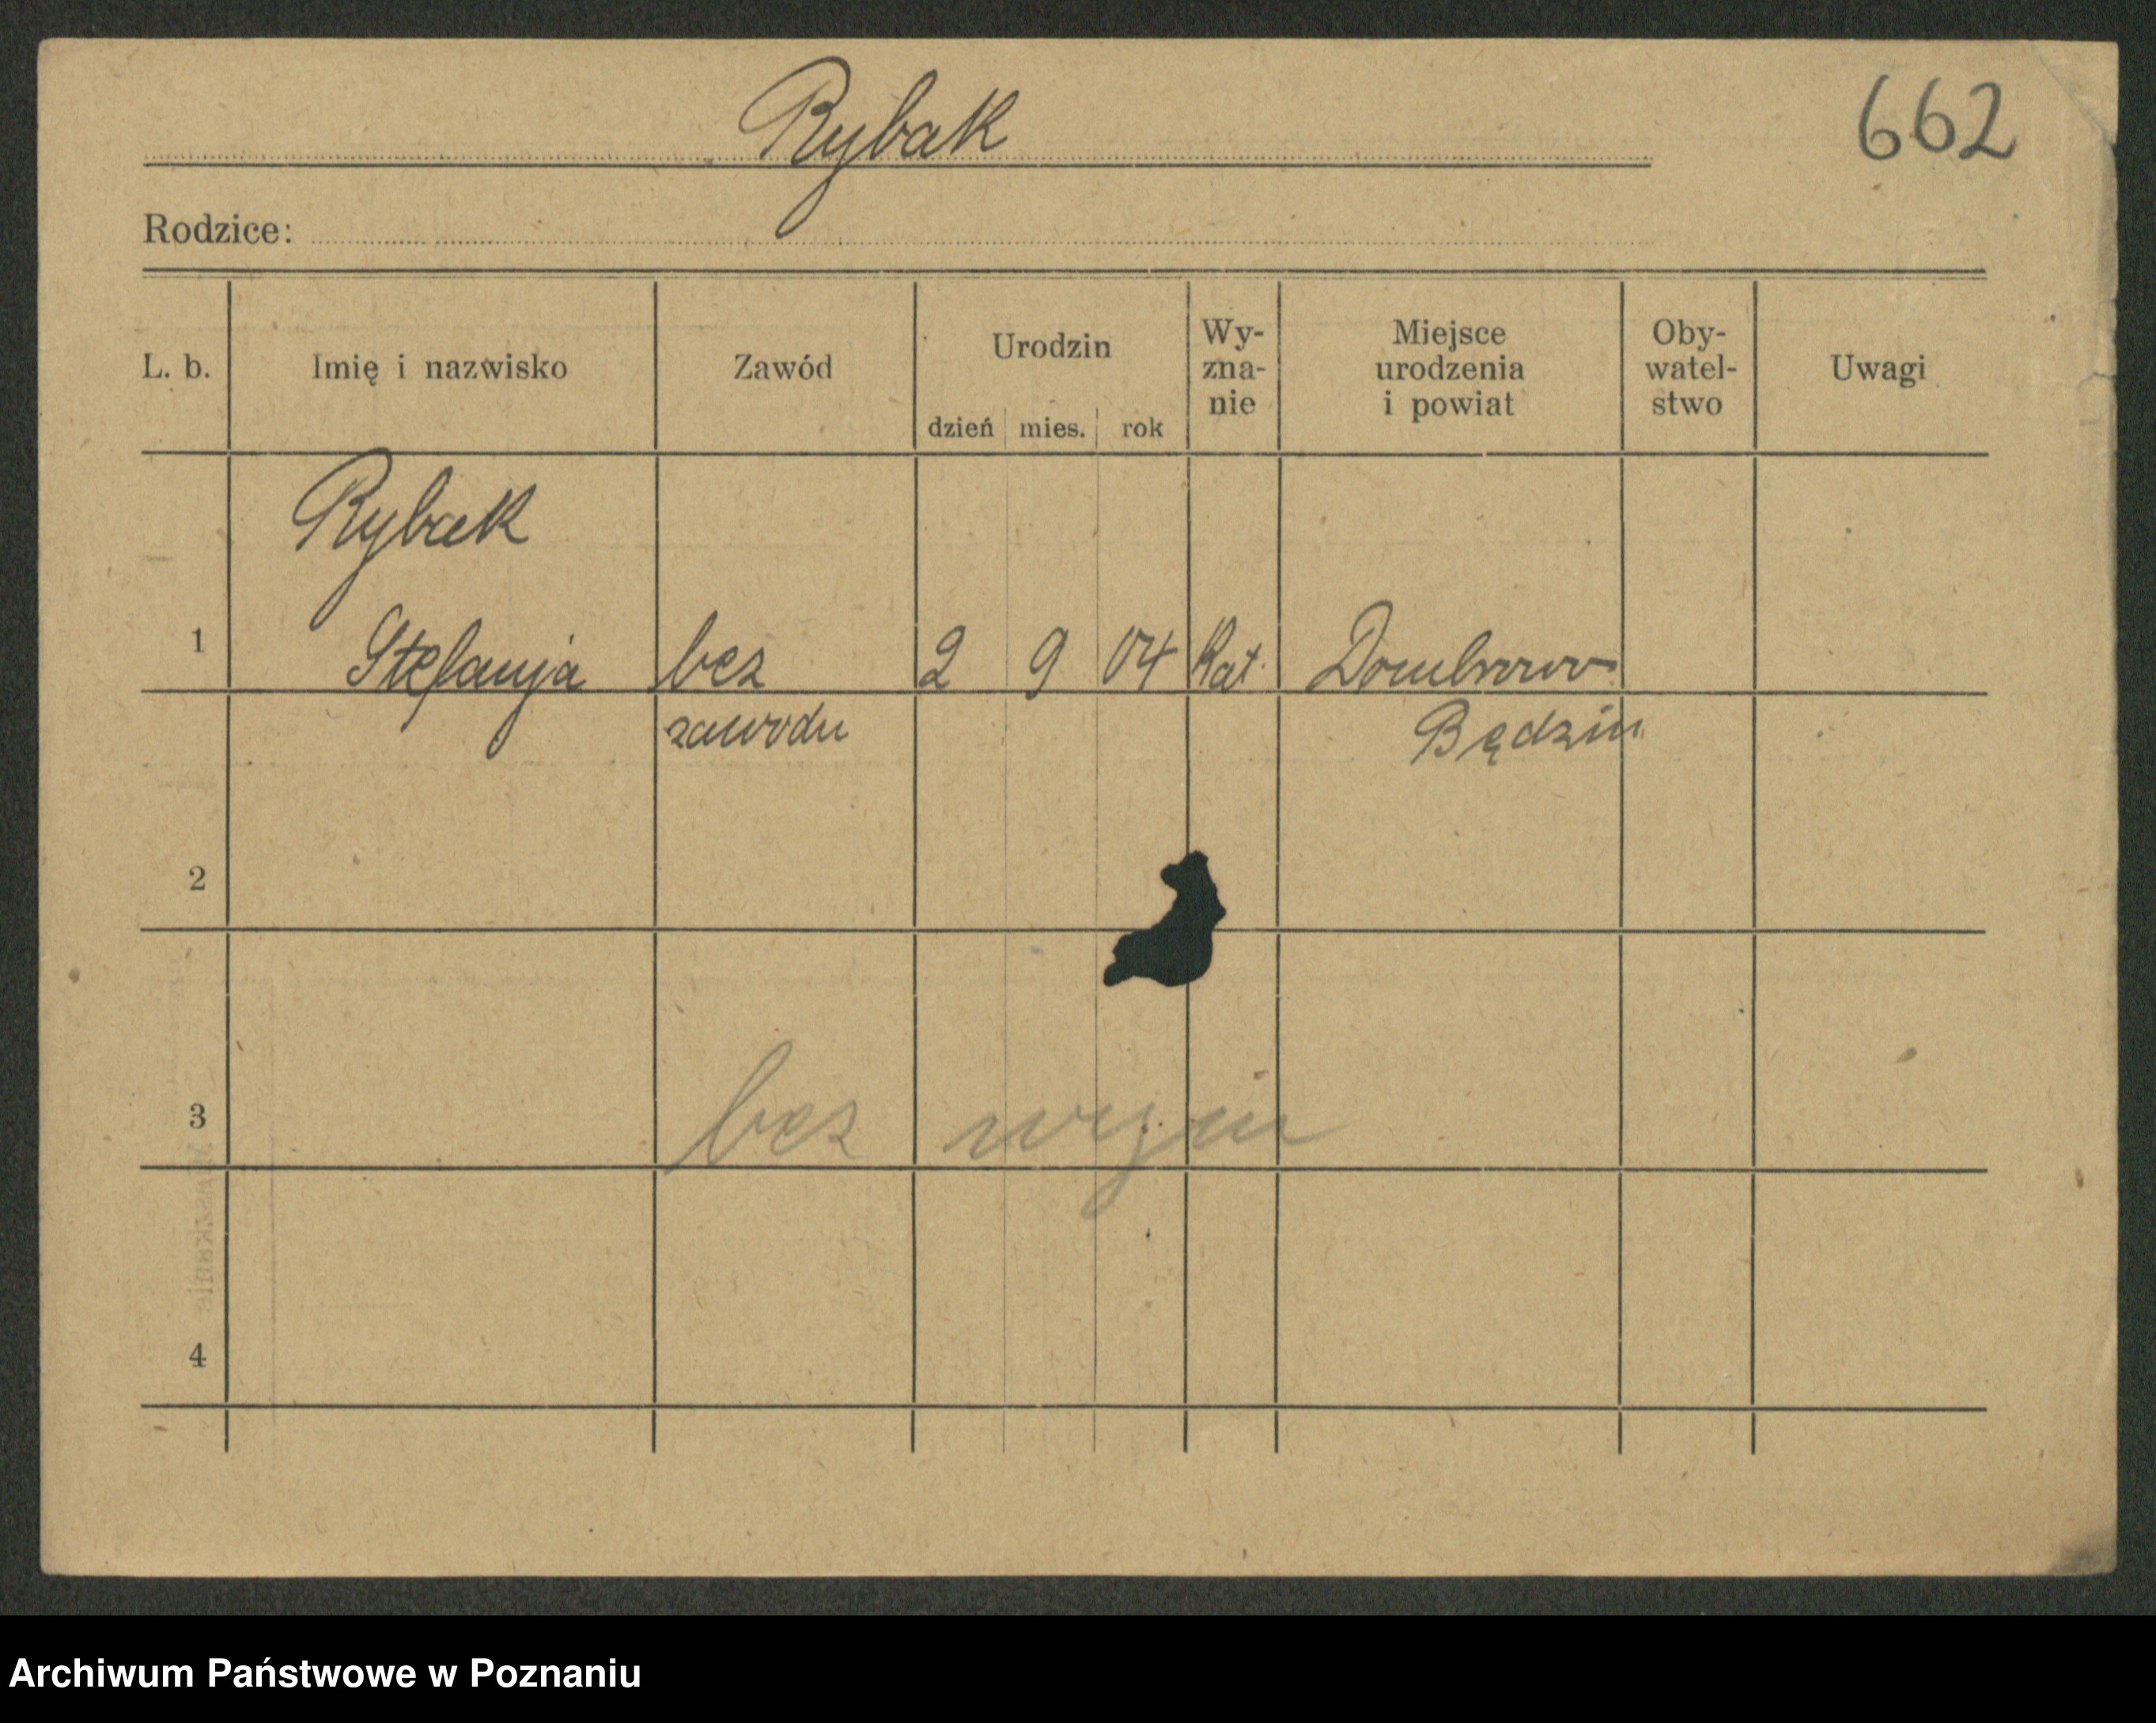 Rybak
662
Rodzice:
L. b.
Imię i nazwisko
Zawód
Urodzin
dzień mies. rok
Wy-
zna-
nie
Miejsce
urodzenia
i powiat
Oby-
watel-
stwo
Uwagi
Rybak
1 Stefanja bez 2 9 04 Kat. Dombrow
zawodu Będzin
2
3 bez
4
Archiwum Państwowe w Poznaniu